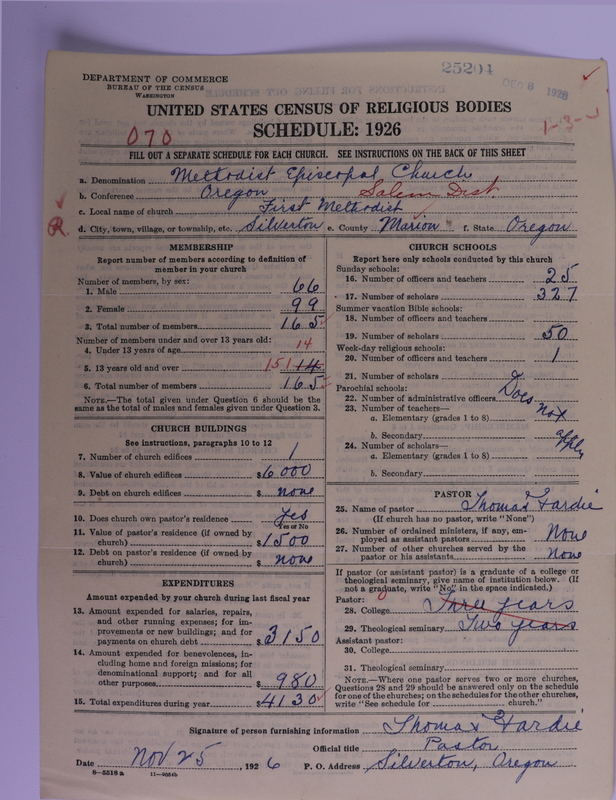 25204
DEC 8 1926
DEPARTMENT OF COMMERCE
BUREAU OF THE CENSUS
WASHINGTON
UNITED STATES CENSUS OF RELIGIOUS BODIES
SCHEDULE: 1926
070
1-3-
FILL OUT A SEPARATE SCHEDULE FOR EACH CHURCH. SEE INSTRUCTIONS ON THE BACK OF THIS SHEET
a. Denomination Methodist Episcopal Church
b. Conference Oregon Salem Dist.
c. Local name of church First Methodist
R.
d. City, town, village, or township, etc. Silverton e. County Marion f. State Oregon
MEMBERSHIP
Report number of members according to definition of
member in your church
Number of members, by sex:
1. Male 66
2. Female 99
3. Total number of members 165
Number of members under and over 13 years old:
4. Under 13 years of age 14
5. 13 years old and over 151 14
6. Total number of members 165
NOTE.—The total given under Question 6 should be the
same as the total of males and females given under Question 3.
CHURCH BUILDINGS
See instructions, paragraphs 10 to 12
7. Number of church edifices 1
8. Value of church edifices $6000
9. Debt on church edifices $ none
10. Does church own pastor's residence Yes
Yes or No
11. Value of pastor's residence (if owned by
church) $1500
12. Debt on pastor's residence (if owned by
church) $ none
EXPENDITURES
Amount expended by your church during last fiscal year
13. Amount expended for salaries, repairs,
and other running expenses; for im-
provements or new buildings; and for
payments on church debt $3150
14. Amount expended for benevolences, in-
cluding home and foreign missions; for
denominational support; and for all
other purposes $980
15. Total expenditures during year $4130
CHURCH SCHOOLS
Report here only schools conducted by this church
Sunday schools:
16. Number of officers and teachers 25
17. Number of scholars 327
Summer vacation Bible schools:
18. Number of officers and teachers
19. Number of scholars 50
Week-day religious schools:
20. Number of officers and teachers 1
21. Number of scholars
Parochial schools:
22. Number of administrative officers Does
23. Number of teachers— not
a. Elementary (grades 1 to 8)
b. Secondary apply
24. Number of scholars—
a. Elementary (grades 1 to 8)
b. Secondary
PASTOR
25. Name of pastor Thomas Hardie
(If church has no pastor, write "None")
26. Number of ordained ministers, if any, em-
ployed as assistant pastors None
27. Number of other churches served by the
pastor or his assistants None
If pastor (or assistant pastor) is a graduate of a college or
theological seminary, give name of institution below. (If
not a graduate, write "No" in the space indicated.)
Pastor: 0
28. College Three years
29. Theological seminary Two years
Assistant pastor:
30. College
31. Theological seminary
NOTE.—Where one pastor serves two or more churches,
Questions 28 and 29 should be answered only on the schedule
for one of the churches; on the schedules for the other churches,
write "See schedule for church."
Signature of person furnishing information Thomas Hardie
Official title Pastor
Date Nov 25, 1926 P. O. Address Silverton, Oregon
8—5518 a 11—9056b